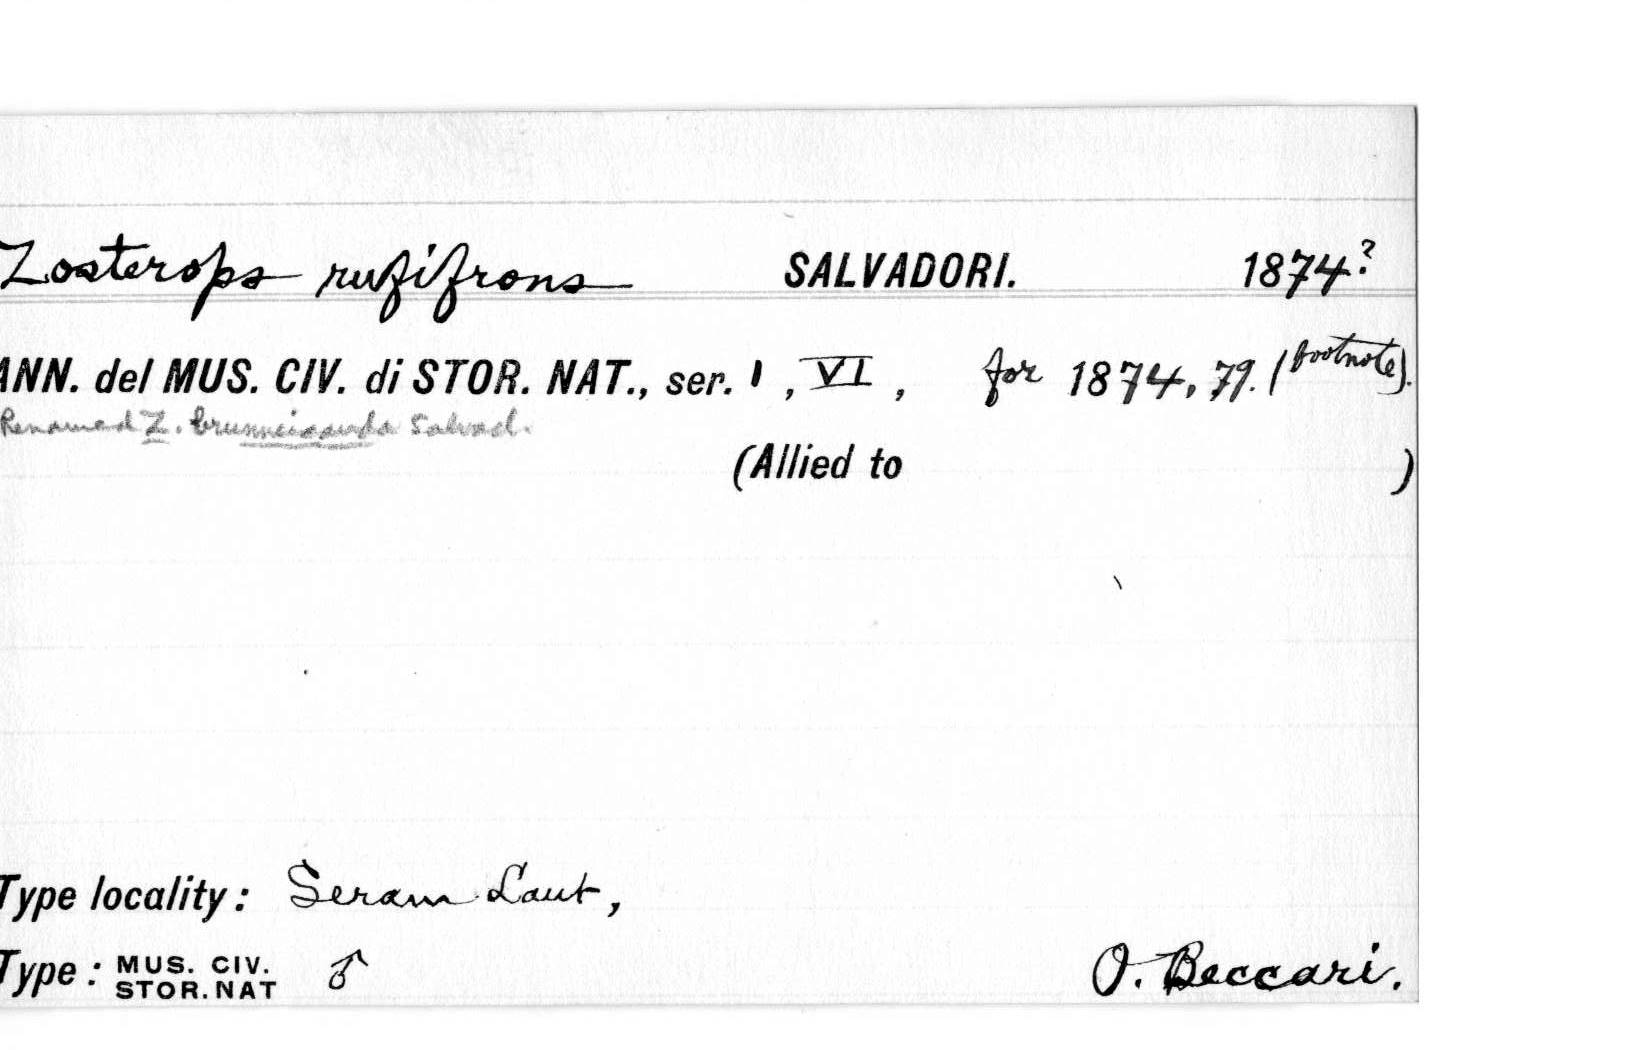 Zosterops rufifrons SALVADORI. 1874?
ANN. del MUS. CIV. di STOR. NAT., ser. I, VI, for 1874, 79. (footnote).
Renamed Z. brunneicauda Salvad.
(Allied to )
Type locality: Seram Laut,
Type: MUS. CIV. STOR. NAT ♂ O. Beccari.